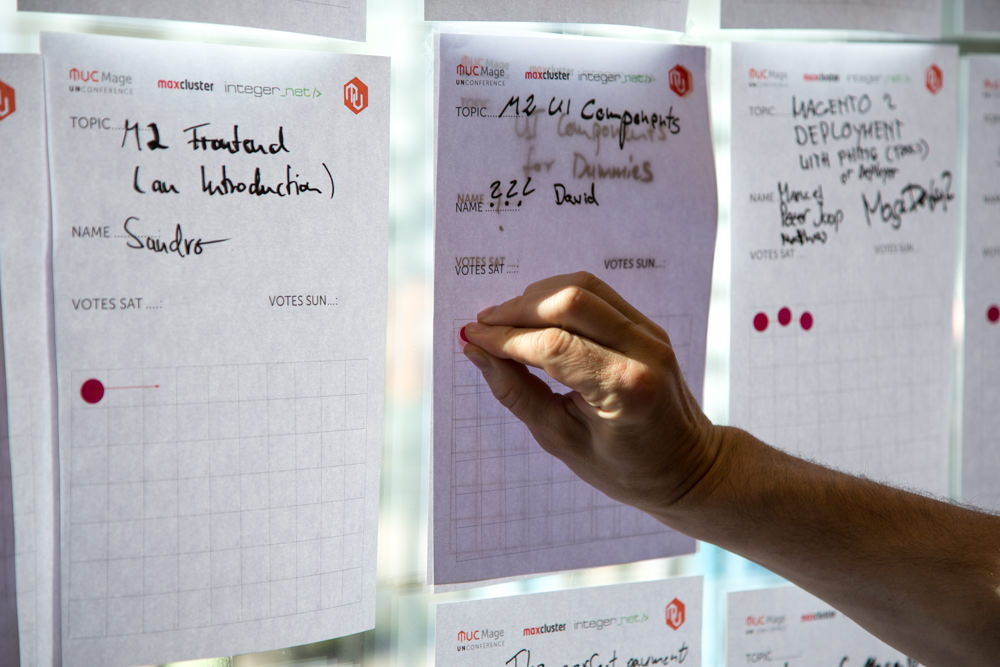 MUC Mage
UNCONFERENCE
maxcluster
integer_net/>
TOPIC....
M2 Frontend
(an Introduction)
NAME ....
Sandro
VOTES SAT ....:
VOTES SUN...:
MUC Mage
UNCONFERENCE
maxcluster
integer_net/>
TOPIC...
M2 UI Components
UI Components
for Dummies
NAME
NAME ........
??? David
VOTES SAT ....:
VOTES SAT ....:
VOTES SUN...:
MUC Mage
UNCONFERENCE
maxcluster
integer_net/>
TOPIC...
MAGENTO 2
DEPLOYMENT
WITH PHING (TOOLS)
or Deployer
NAME
Manuel
Peter Joop
Matthias
VOTES SAT ....
VOTES SUN...
MUC Mage
UNCONFERENCE
maxcluster
integer_net/>
The perfect payment
MUC Mage
UNCONFERENCE
maxcluster
TOPIC